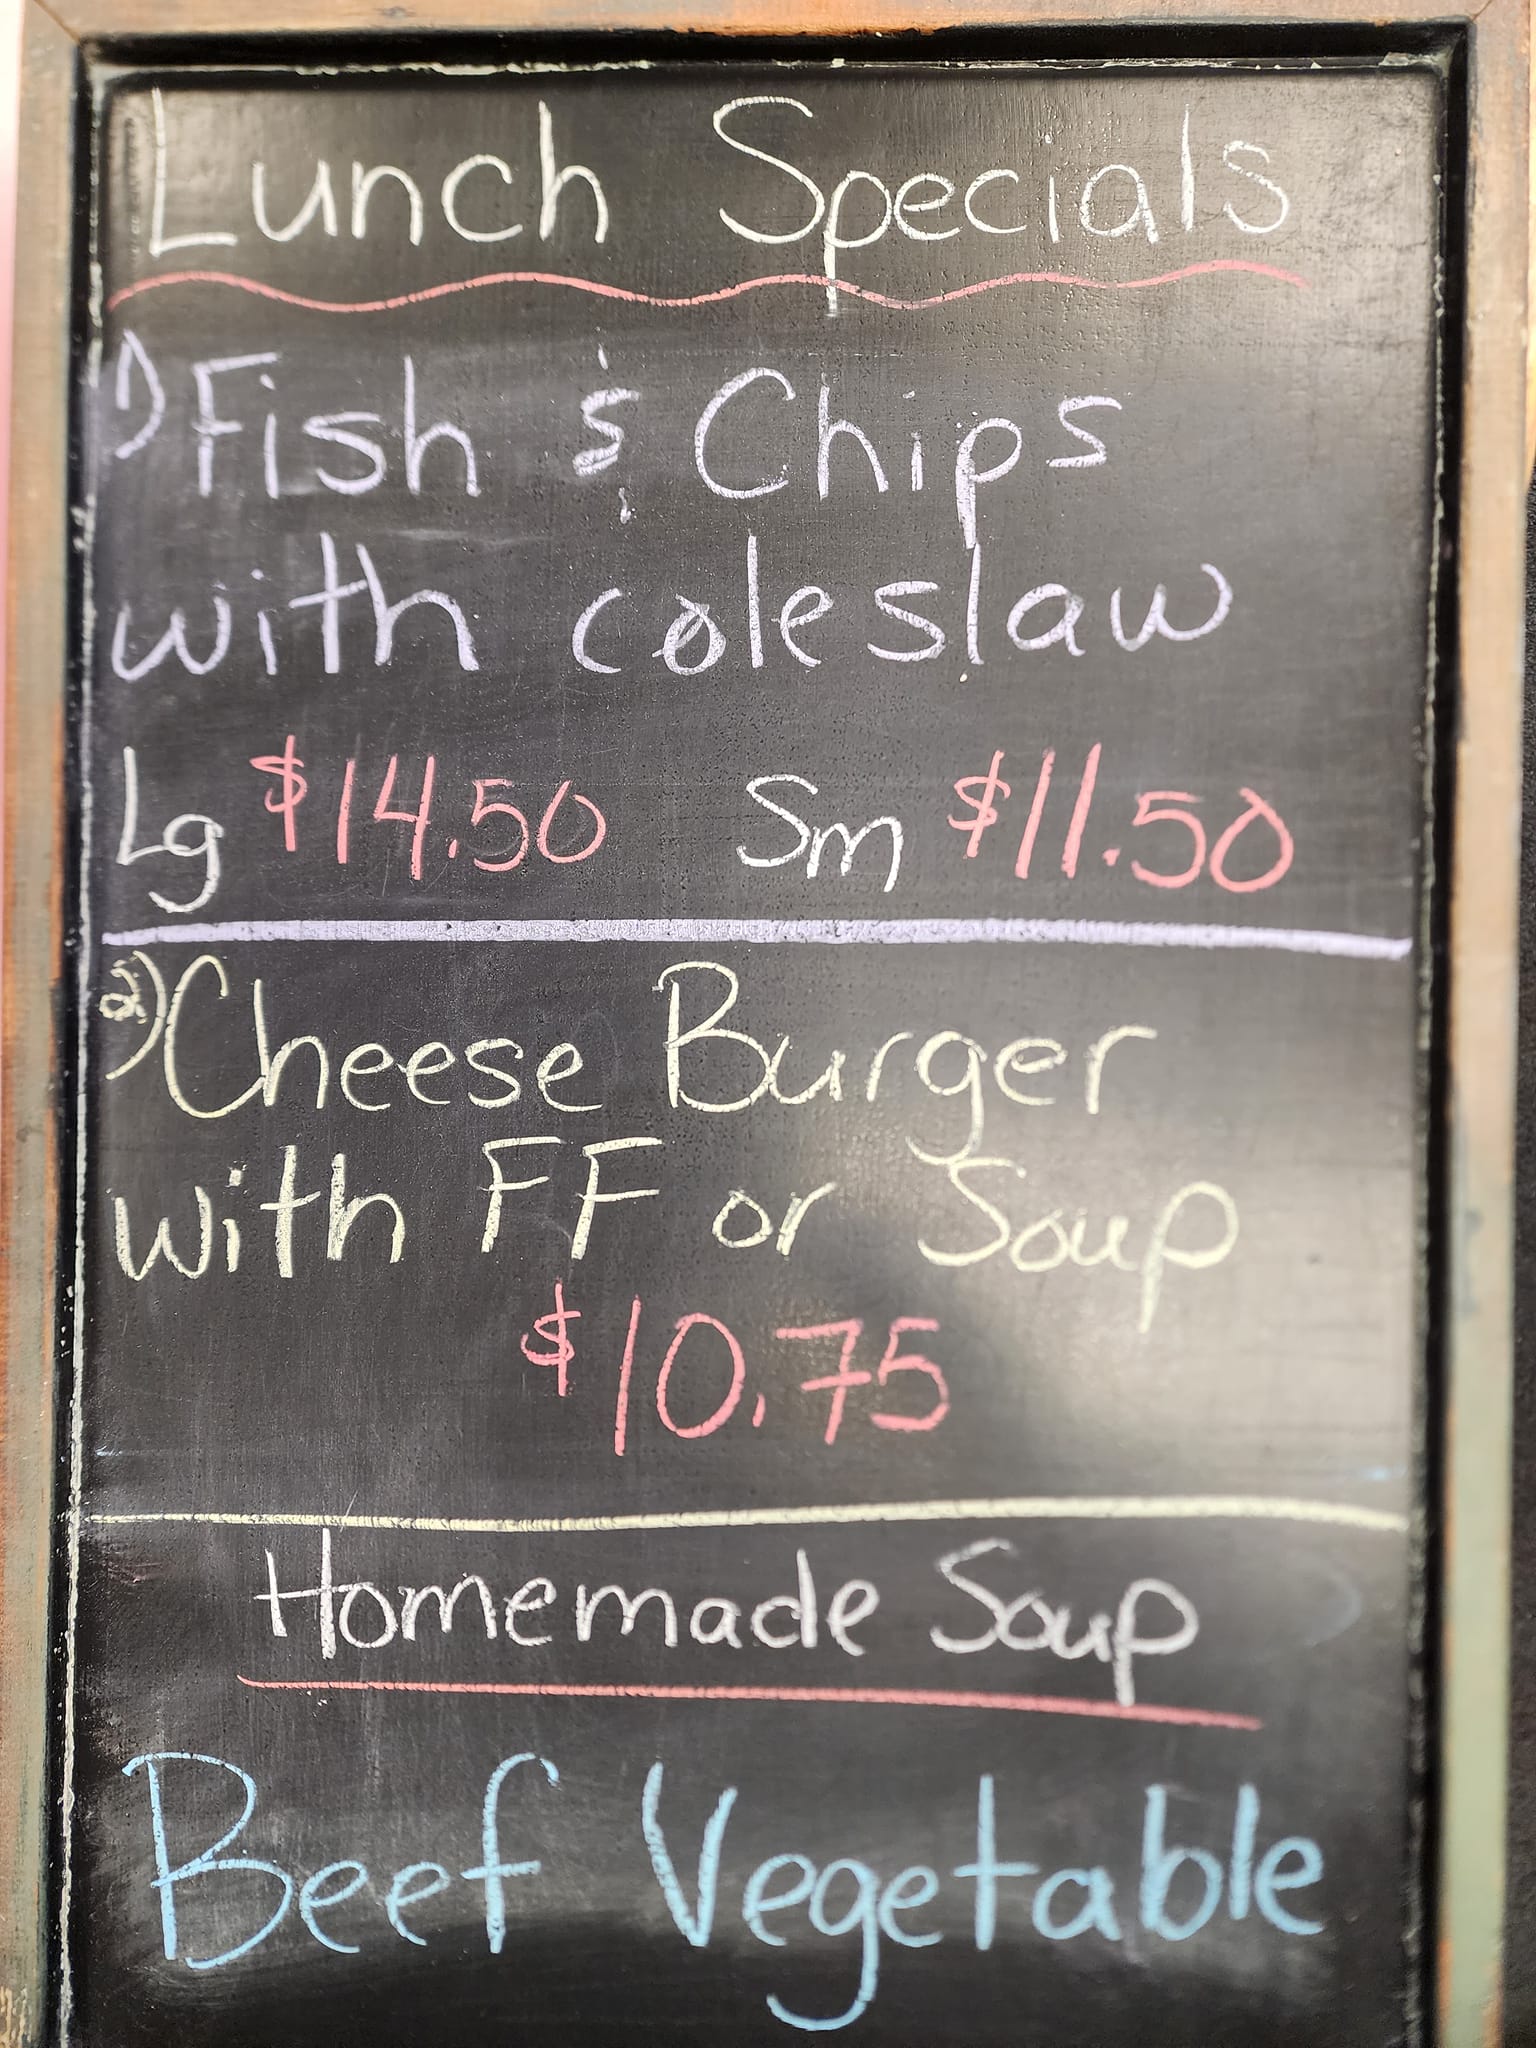 Lunch Specials
1) Fish & Chips
with coleslaw
Lg $14.50 Sm $11.50
2) Cheese Burger
with FF or Soup
$10.75
Homemade Soup
Beef Vegetable